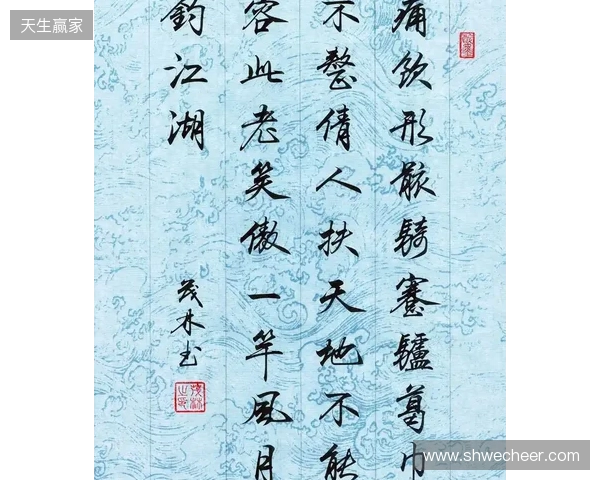 天生赢家
痛飲形骸騎蹇驢葛巾
不整倩人扶天地不能
容此老笑傲一竿風月
釣江湖
茂林书
www.shwecheer.com